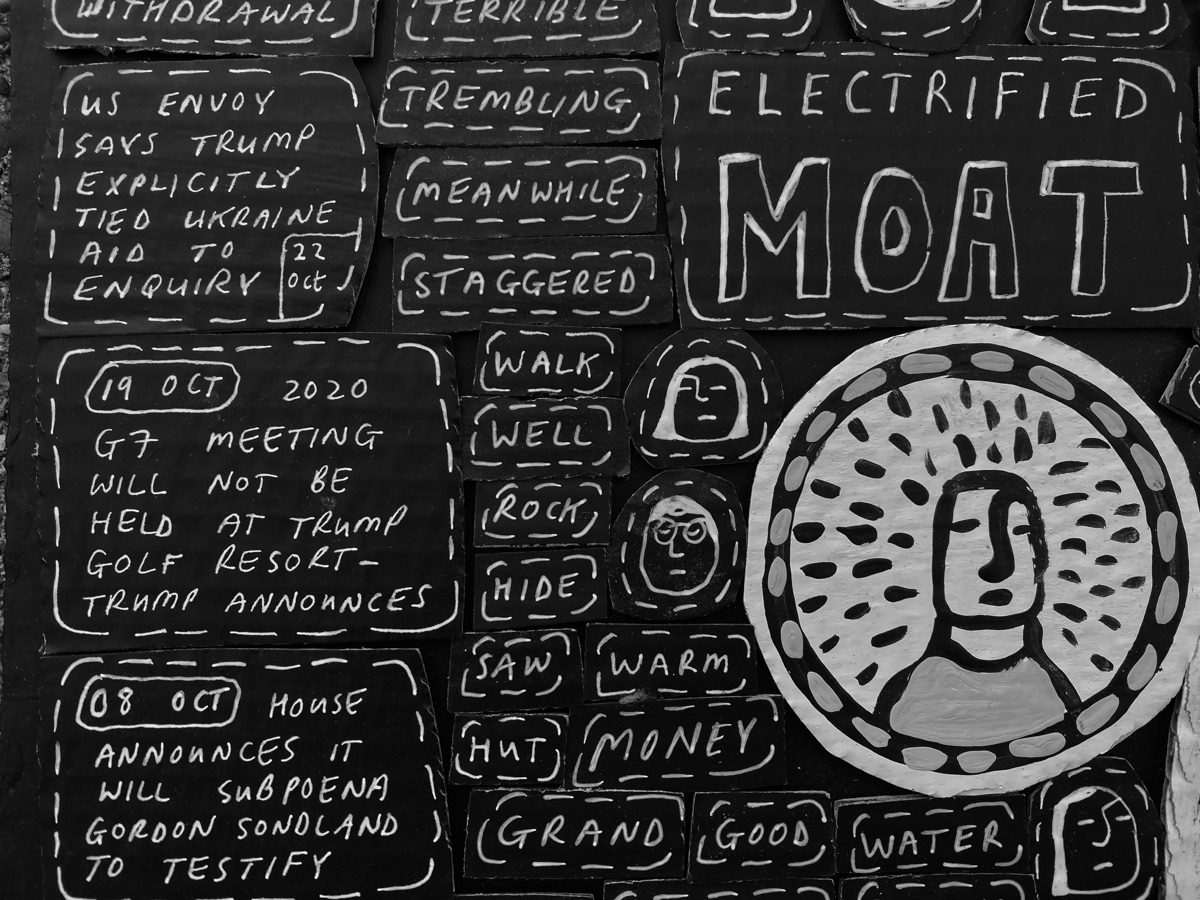 WITHDRAWAL
US ENVOY
SAYS TRUMP
EXPLICITLY
TIED UKRAINE
AID TO
ENQUIRY
22
OCT
19 OCT 2020
G7 MEETING
WILL NOT BE
HELD AT TRUMP
GOLF RESORT-
TRUMP ANNOUNCES
08 OCT HOUSE
ANNOUNCES IT
WILL SUBPOENA
GORDON SONDLAND
TO TESTIFY
TERRIBLE
TREMBLING
MEANWHILE
STAGGERED
WALK
WELL
ROCK
HIDE
SAW WARM
HUT MONEY
GRAND GOOD WATER
ELECTRIFIED
MOAT